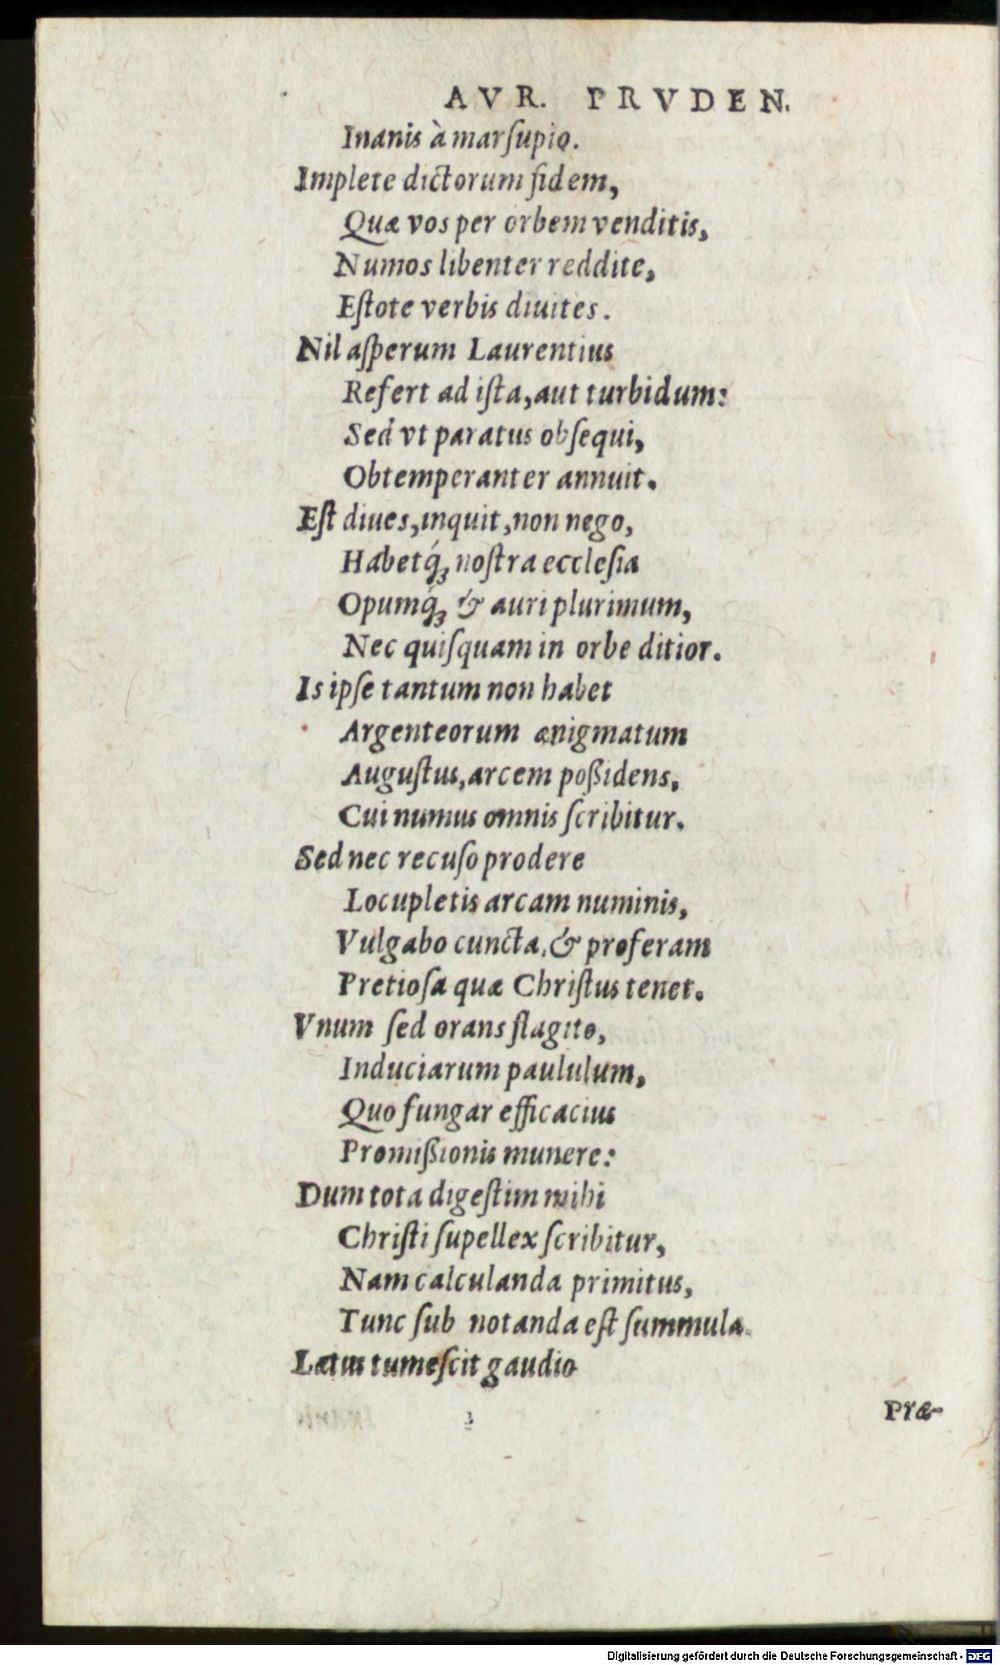 AVR. PRVDEN.
Inanis à marſupio.
Implete dictorum fidem,
Quæ vos per orbem venditis,
Numos libenter reddite,
Eſtote verbis diuites.
Nil aſperum Laurentius
Refert ad iſta, aut turbidum:
Sed vt paratus obſequi,
Obtemperanter annuit.
Eſt diues, inquit, non nego,
Habetq́; noſtra eccleſia
Opumq́; & auri plurimum,
Nec quiſquam in orbe ditior.
Is ipſe tantum non habet
Argenteorum ænigmatum
Auguſtus, arcem poßidens,
Cui numus omnis ſcribitur.
Sed nec recuſo prodere
Locupletis arcam numinis,
Vulgabo cuncta, & proferam
Pretioſa quæ Chriſtus tenet.
Vnum ſed orans flagito,
Induciarum paululum,
Quo fungar efficacius
Promißionis munere:
Dum tota digeſtim mihi
Chriſti ſupellex ſcribitur,
Nam calculanda primitus,
Tunc ſub notanda eſt ſummula.
Lætus tumeſcit gaudio
Præ-
Digitalisierung gefördert durch die Deutsche Forschungsgemeinschaft - DFG